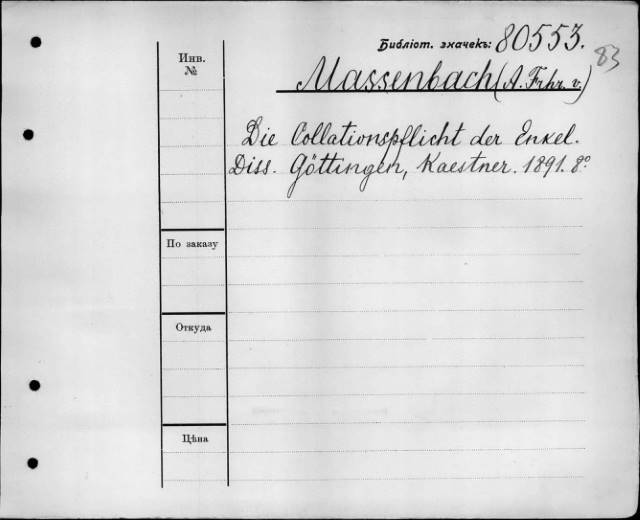 Библіот. значекъ: 80553.
83
Инв. №
Massenbach (A. Frhr. v.)
Die Collationspflicht der Enkel.
Diss. Göttingen, Kaestner. 1891. 8º
По заказу
Откуда
Цѣна